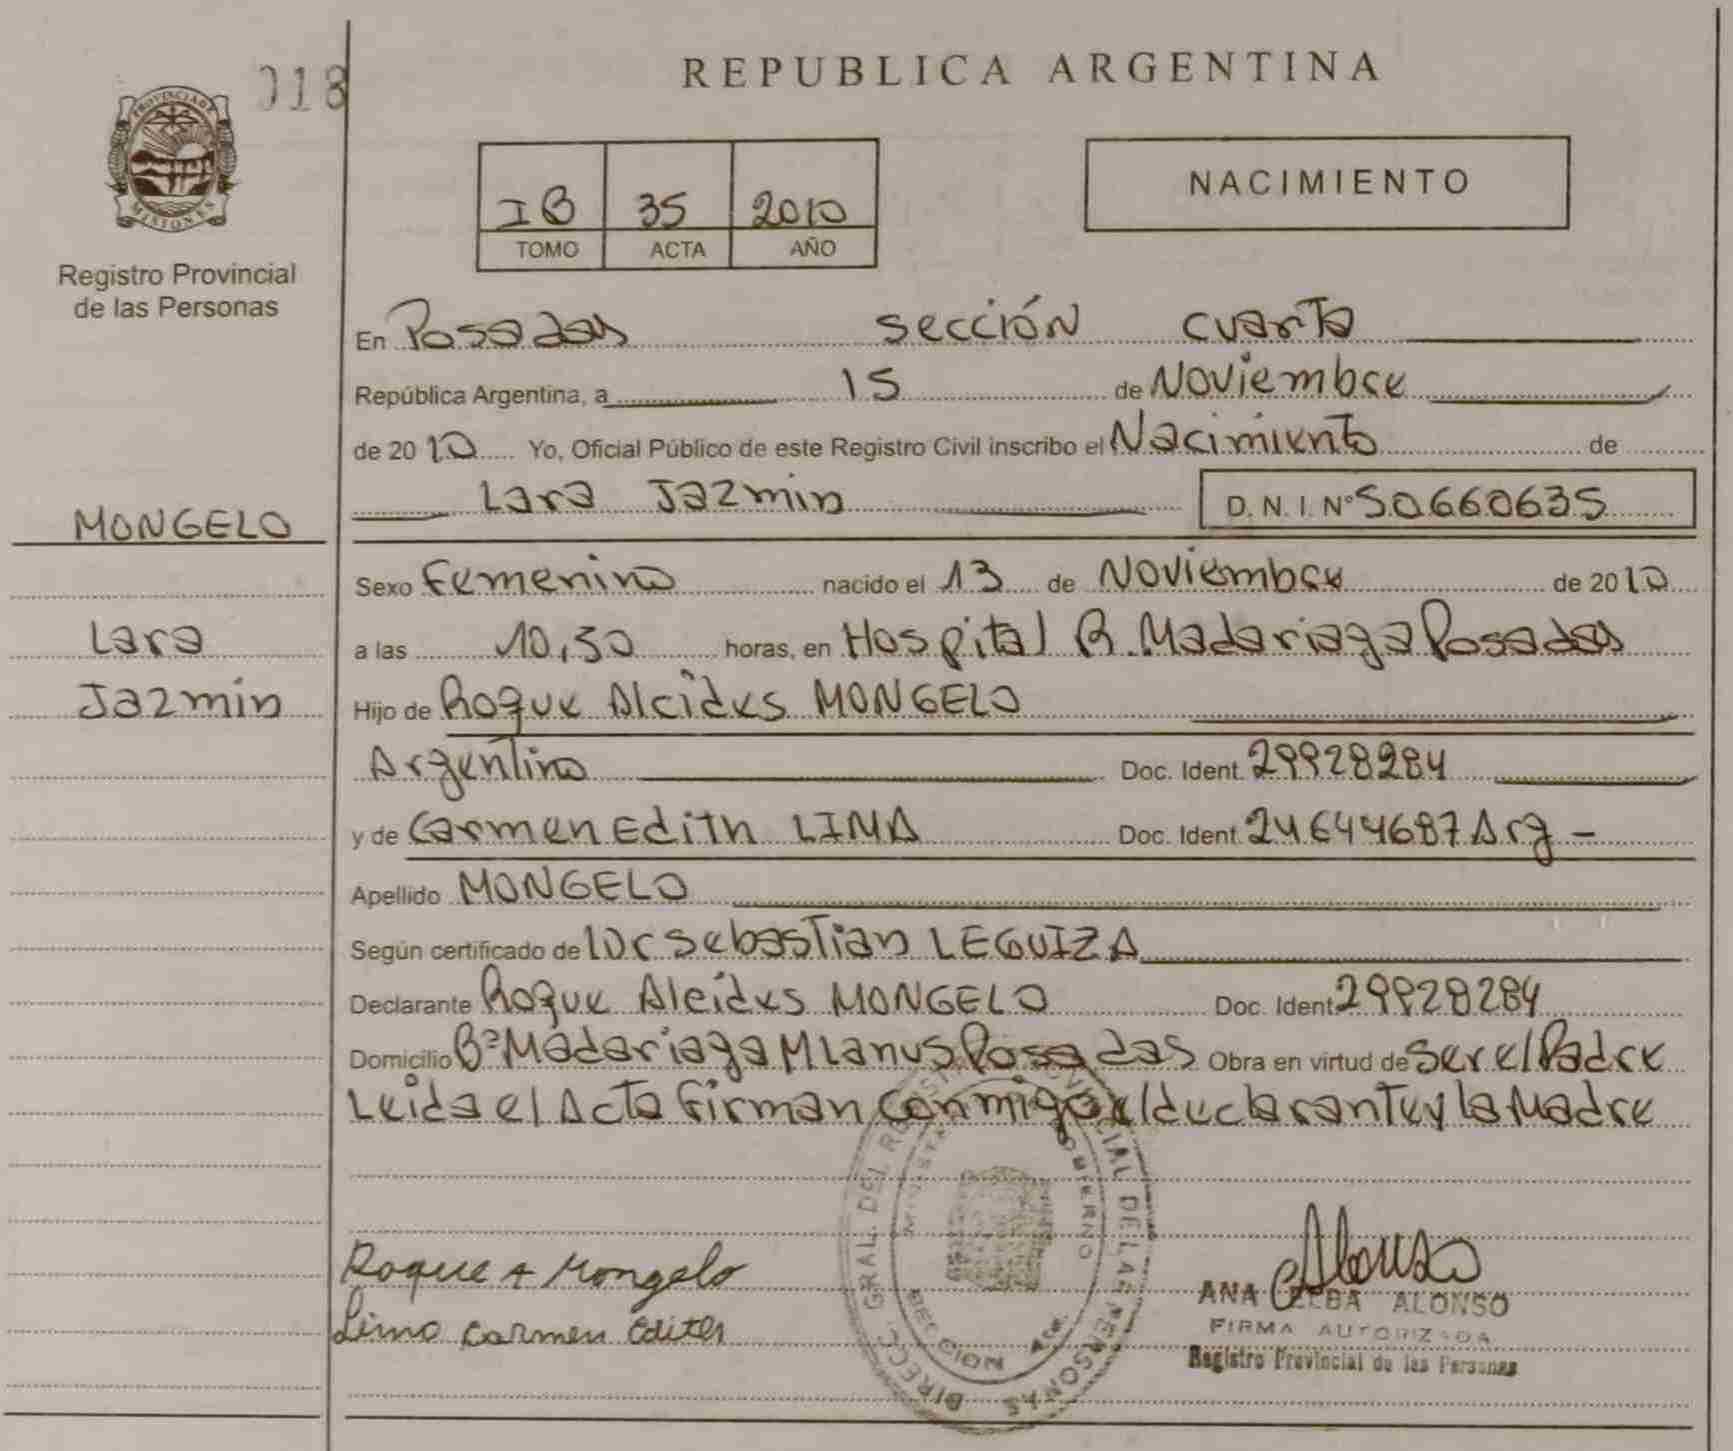 018
REPUBLICA ARGENTINA
PROVINCIA DE
MISIONES
Registro Provincial
de las Personas
IB 35 2010
TOMO ACTA AÑO
NACIMIENTO
En Posadas sección cuarta
República Argentina, a 15 de Noviembre
de 2010 Yo, Oficial Público de este Registro Civil inscribo el Nacimiento de
Lara Jazmin D.N.I. Nº 50660635
MONGELO
Lara
Jazmin
Sexo Femenino nacido el 13 de Noviembre de 2010
a las 10,50 horas, en Hospital R. Madariaga Posadas
Hijo de Roque Alcides MONGELO
Argentino Doc. Ident. 29928284
y de Carmen Edith LIMA Doc. Ident. 24644687 Arg -
Apellido MONGELO
Según certificado de Sebastian LEGUIZA
Declarante Roque Alcides MONGELO Doc. Ident 29928284
Domicilio Bº Madariaga M Lanus Posadas Obra en virtud de ser el Padre
Leida el Acta firman conmigo el declarante y la Madre
Roque A Mongelo
Lima Carmen Edith
DIRECC. GRAL. DEL REGISTRO PROVINCIAL DE LAS PERSONAS
Alonso
ANA ELBA ALONSO
FIRMA AUTORIZADA
Registro Provincial de las Personas